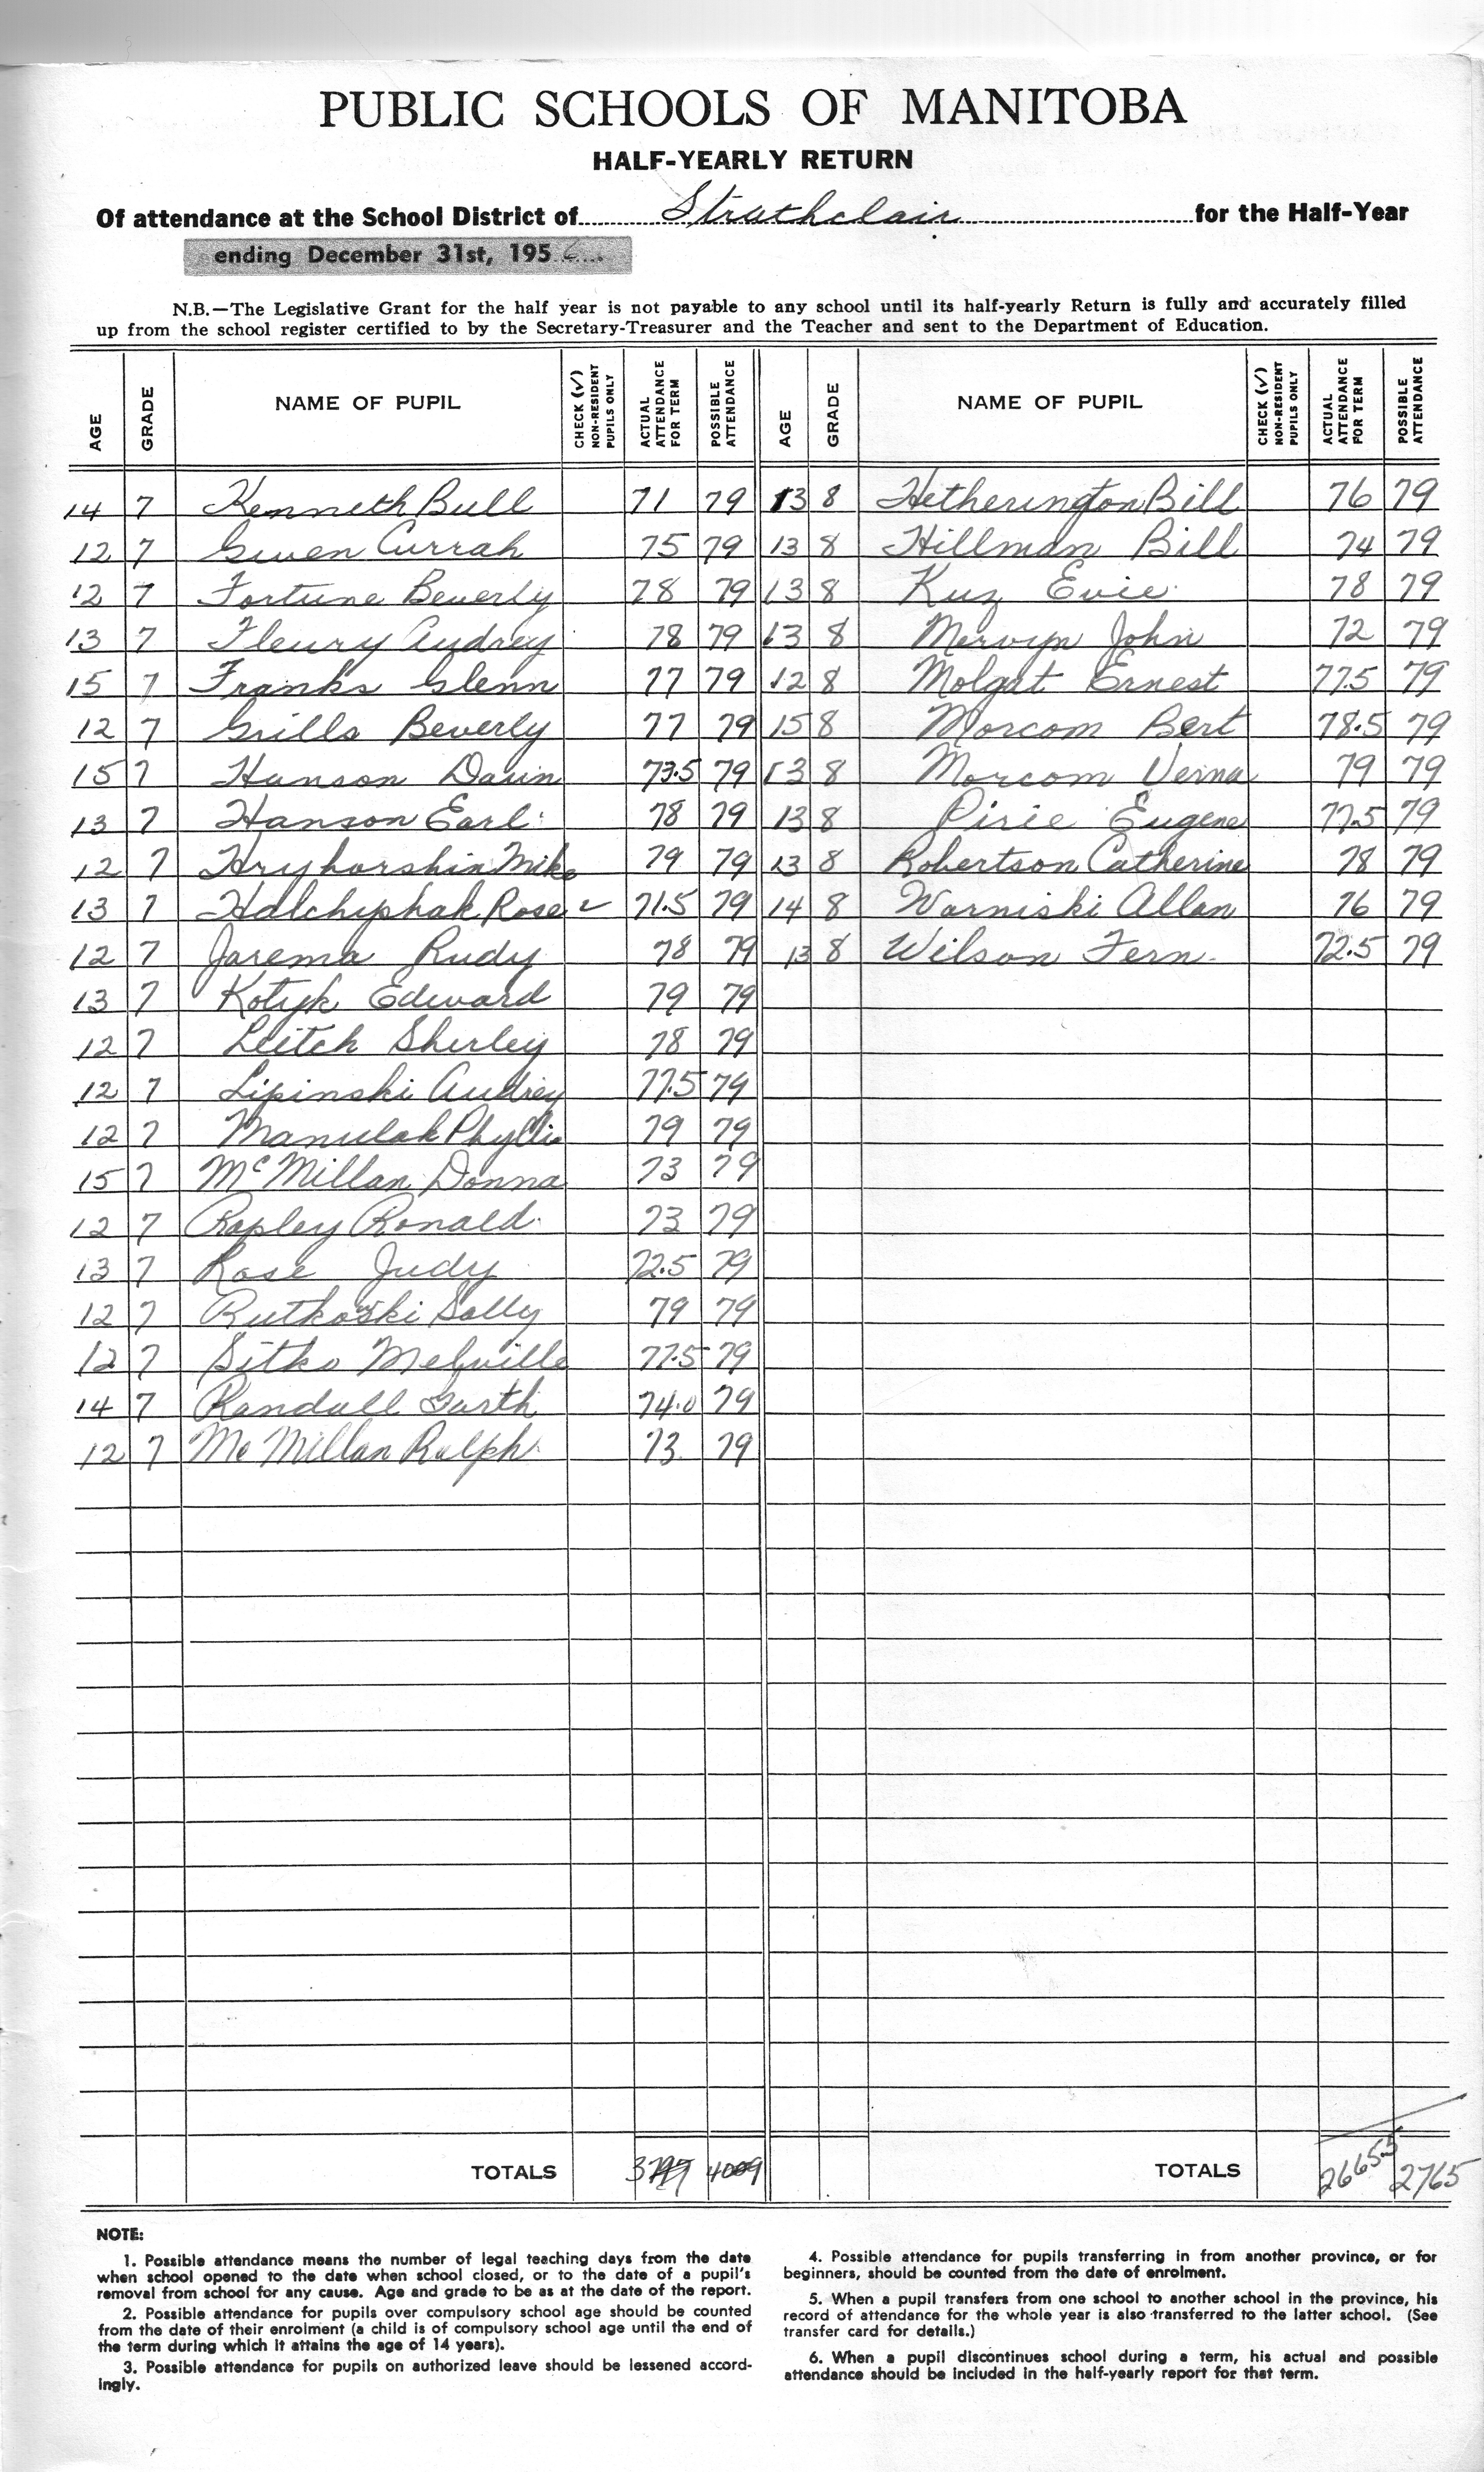 PUBLIC SCHOOLS OF MANITOBA
HALF-YEARLY RETURN
Of attendance at the School District of Strathclair for the Half-Year
ending December 31st, 1956
N.B.—The Legislative Grant for the half year is not payable to any school until its half-yearly Return is fully and accurately filled
up from the school register certified to by the Secretary-Treasurer and the Teacher and sent to the Department of Education.
AGE GRADE NAME OF PUPIL CHECK (✓) NON-RESIDENT PUPILS ONLY ACTUAL ATTENDANCE FOR TERM POSSIBLE ATTENDANCE AGE GRADE NAME OF PUPIL CHECK (✓) NON-RESIDENT PUPILS ONLY ACTUAL ATTENDANCE FOR TERM POSSIBLE ATTENDANCE
14 7 Kenneth Bull 71 79 13 8 Hetherington Bill 76 79
12 7 Gwen Currah 75 79 13 8 Hillman Bill 74 79
12 7 Fortune Beverly 78 79 13 8 Kuz Evie 78 79
13 7 Fleury Audrey 78 79 13 8 Mervyn John 72 79
15 7 Franks Glenn 77 79 12 8 Molgat Ernest 77.5 79
12 7 Grills Beverly 77 79 15 8 Morcom Bert 78.5 79
15 7 Hanson Davin 73.5 79 13 8 Morcom Verna 79 79
13 7 Hanson Earl 78 79 13 8 Pirie Eugene 77.5 79
12 7 Hryhorshin Mike 79 79 13 8 Robertson Catherine 78 79
13 7 Halchyshak Rose ✓ 71.5 79 14 8 Warniski Allan 76 79
12 7 Jarema Rudy 78 79 13 8 Wilson Fern 72.5 79
13 7 Kotyk Edward 79 79
12 7 Leitch Shirley 78 79
12 7 Lipinski Audrey 77.5 79
12 7 Manulak Phyllis 79 79
15 7 McMillan Donna 73 79
12 7 Rapley Ronald 73 79
13 7 Rose Judy 72.5 79
12 7 Rutkowski Sally 79 79
12 7 Sitko Melville 77.5 79
14 7 Randall Garth 74.0 79
12 7 McMillan Ralph 73 79
TOTALS TOTALS 2665.5 2765
NOTE:
1. Possible attendance means the number of legal teaching days from the date
when school opened to the date when school closed, or to the date of a pupil's
removal from school for any cause. Age and grade to be as at the date of the report.
2. Possible attendance for pupils over compulsory school age should be counted
from the date of their enrolment (a child is of compulsory school age until the end of
the term during which it attains the age of 14 years).
3. Possible attendance for pupils on authorized leave should be lessened accord-
ingly.
4. Possible attendance for pupils transferring in from another province, or for
beginners, should be counted from the date of enrolment.
5. When a pupil transfers from one school to another school in the province, his
record of attendance for the whole year is also transferred to the latter school. (See
transfer card for details.)
6. When a pupil discontinues school during a term, his actual and possible
attendance should be included in the half-yearly report for that term.